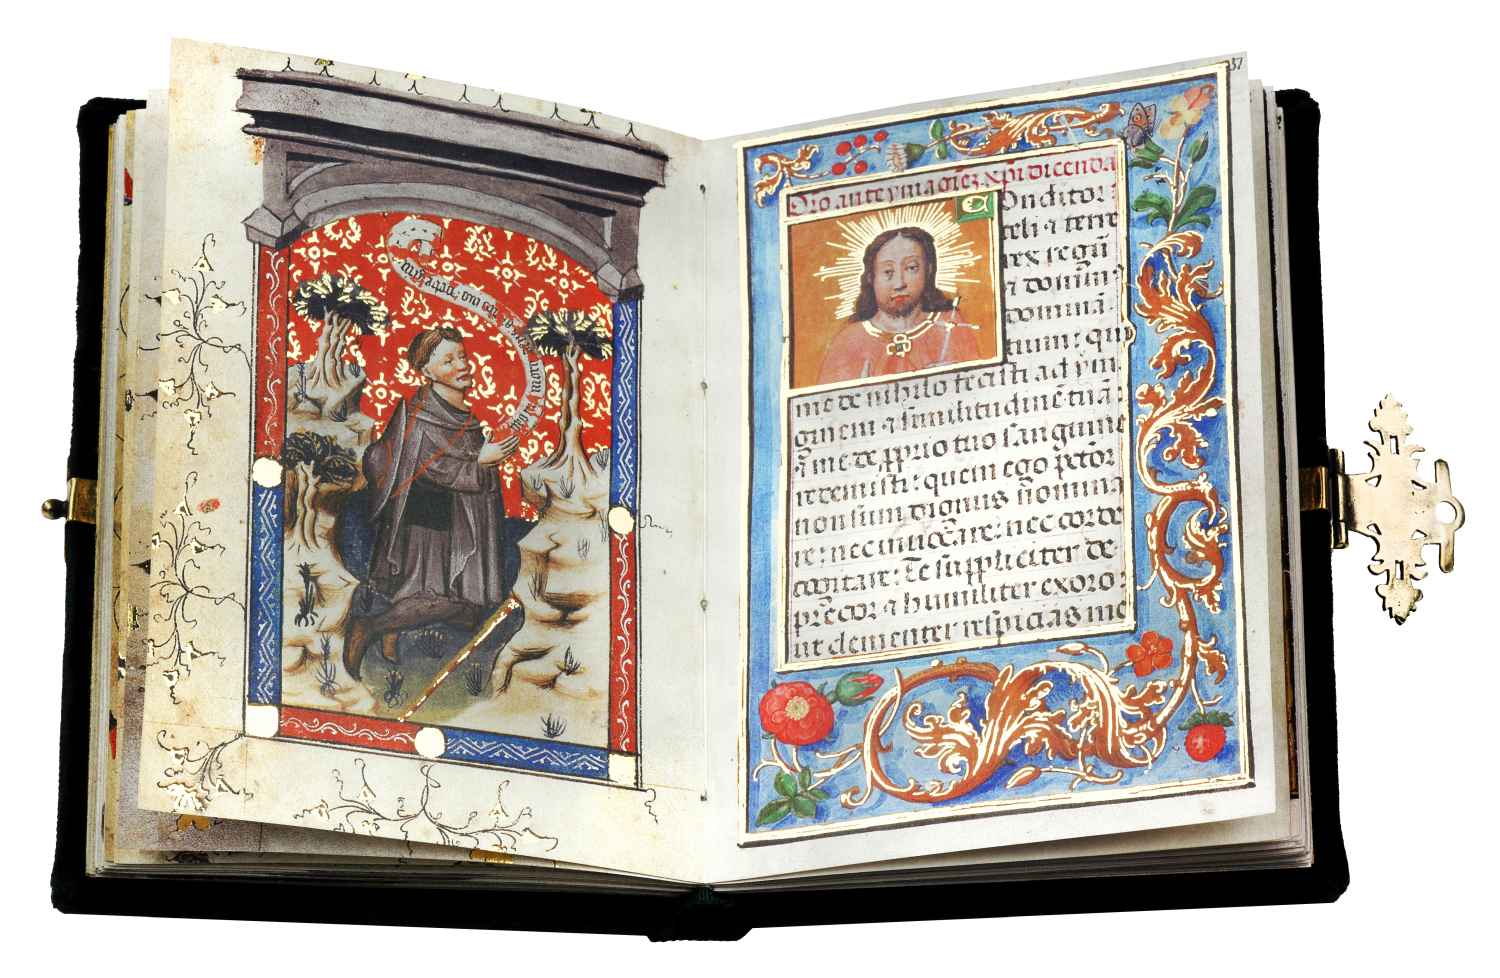 Oro ante ymaginez xpi dicenda
Onditor
celi ⁊ terre
rex regū
⁊ domin
dominā
tium: qui
me de nihilo fecisti ad ym
ginem ⁊ similitudinē tuā:
me de pprio tuo sanguine
redemisti: quem ego pctor
non sum dignus nomina
re: nec invocare: nec corde
cogitare: Te suppliciter de
precor ⁊ humiliter exoro:
ut clementer respicias me